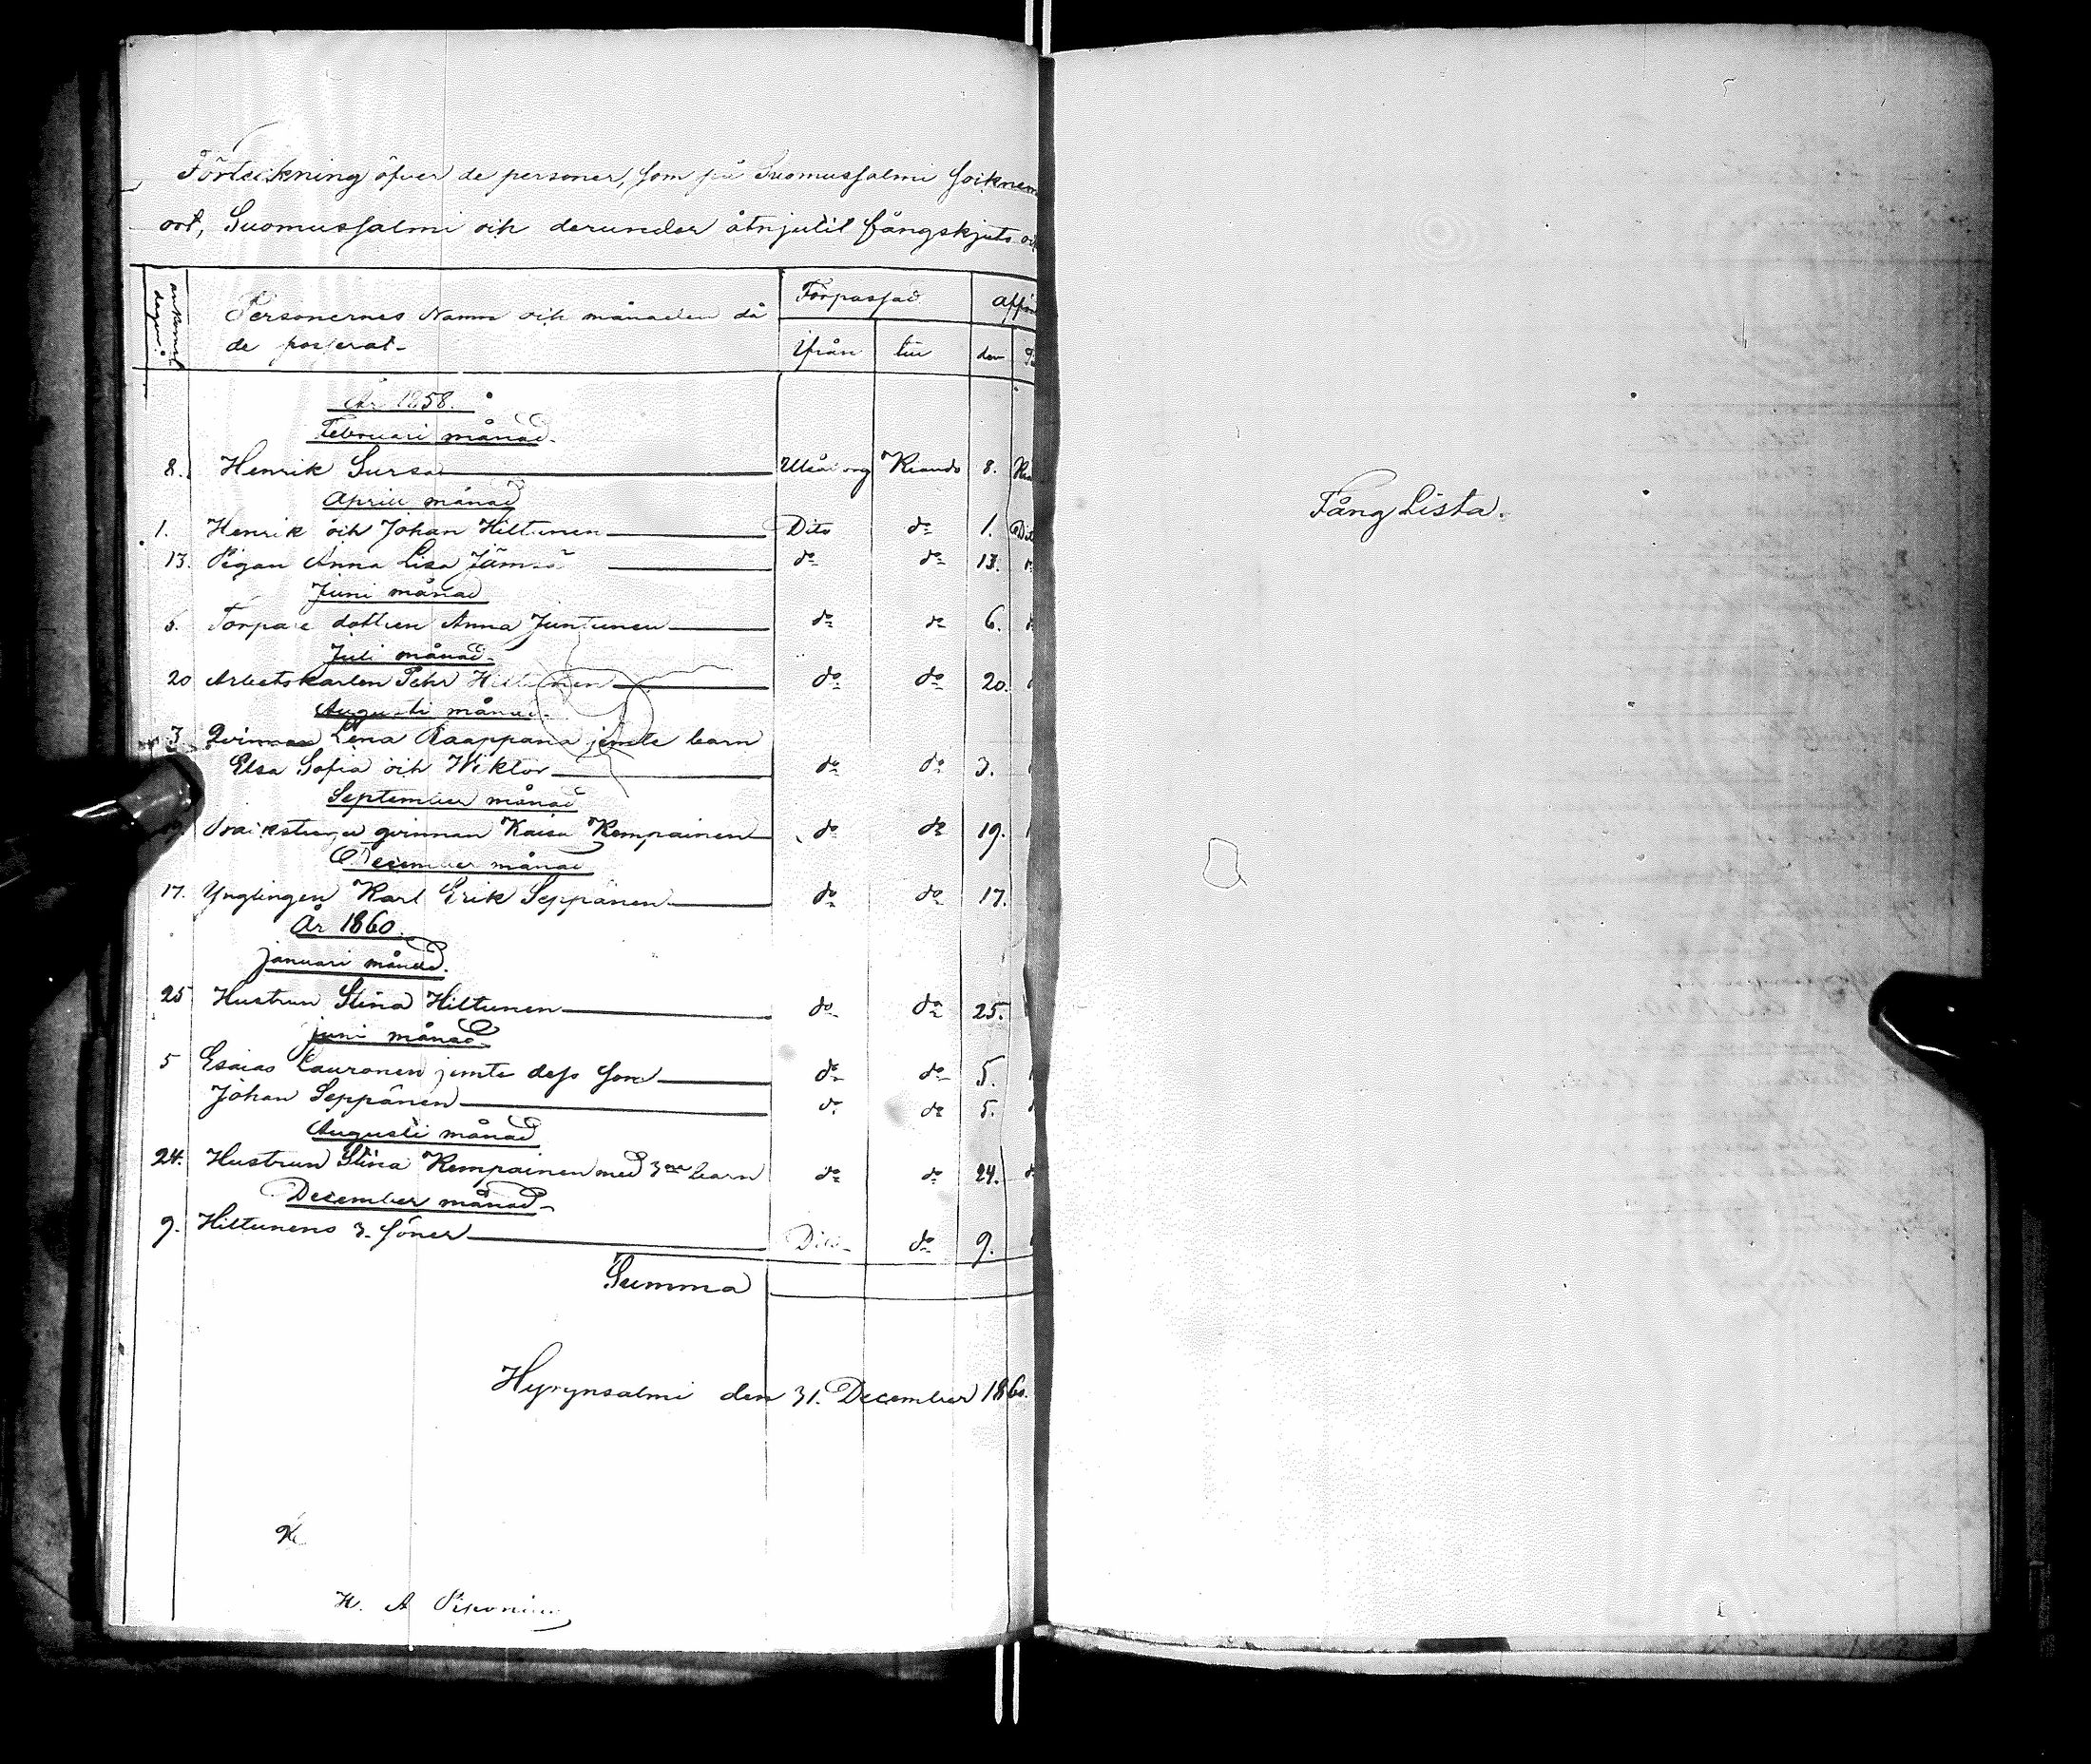 Förteckning öfver de personer, som på Suomussalmi soknens
ort, Suomussalmi och derunder åtnjutit fångskjuts och
ankomst dagen. Personernes Namn och månaden då Förpassad aff
de passerat. Ifrån till den
År 1858.
Februari månad.
8. Henrik Sursa Uleåborg Kianto 8.
Aprill månad
1. Henrik och Johan Hiltunen Dito do 1.
13. Pigan Anna Lisa Jämsä do do 13.
Juni månad
6. Torpare dottren Anna Juntunen do do 6.
Juli månad.
20 Arbetskarlen Pehr Hiltunen do do 20.
Augusti månad.
3 Qvinnan Lena Raappana jemte barn
Elsa Sofia och Wiktor do do 3.
September månad
qvinnan Kaisa Kempainen do do 19.
December månad
17. Ynglingen Karl Erik Seppänen do do 17.
År 1860.
januari månad.
25 Hustrun Stina Hiltunen do do 25.
juni månad.
5 Esaias Lauronen jemte dess son do do 5.
Johan Seppänen do do 5.
Augusti månad
24. Hustrun Stina Kempainen med 3ne barn do do 24.
December månad.
9. Hiltunens 3. söner Dito do 9.
Summa
Hyrynsalmi den 31. December 1860.
H. A
Fång Lista.